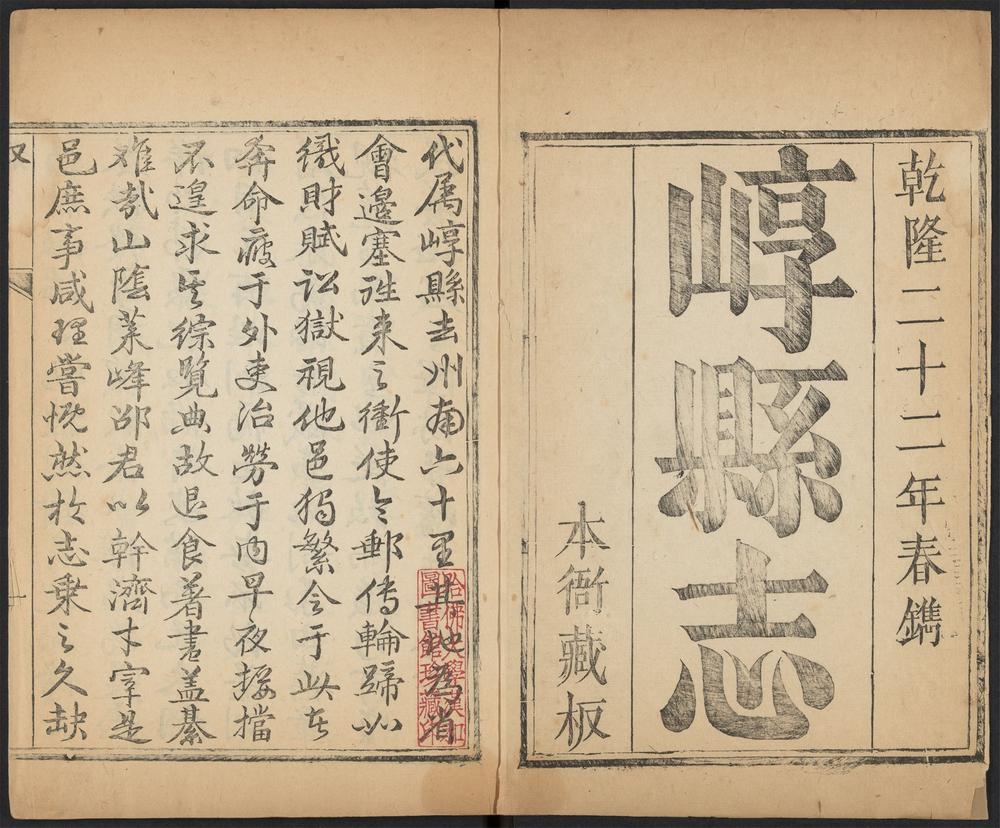 乾隆二十二年春鐫
崞縣志
本衙藏板
代属崞縣去州南六十里其地為省
會邉塞徃来之衝使令郵傳輪蹄如
織財賦訟獄視他邑獨繁令于此者
奔命疲于外吏治勞于内早夜擾攘
不遑求其綜覽典故退食著書盖綦
难㢤山隂菜峰邵君以幹濟才宰是
邑庶事咸理嘗慨然於志乗之久缺
哈佛大學漢和
圖書館珍藏印